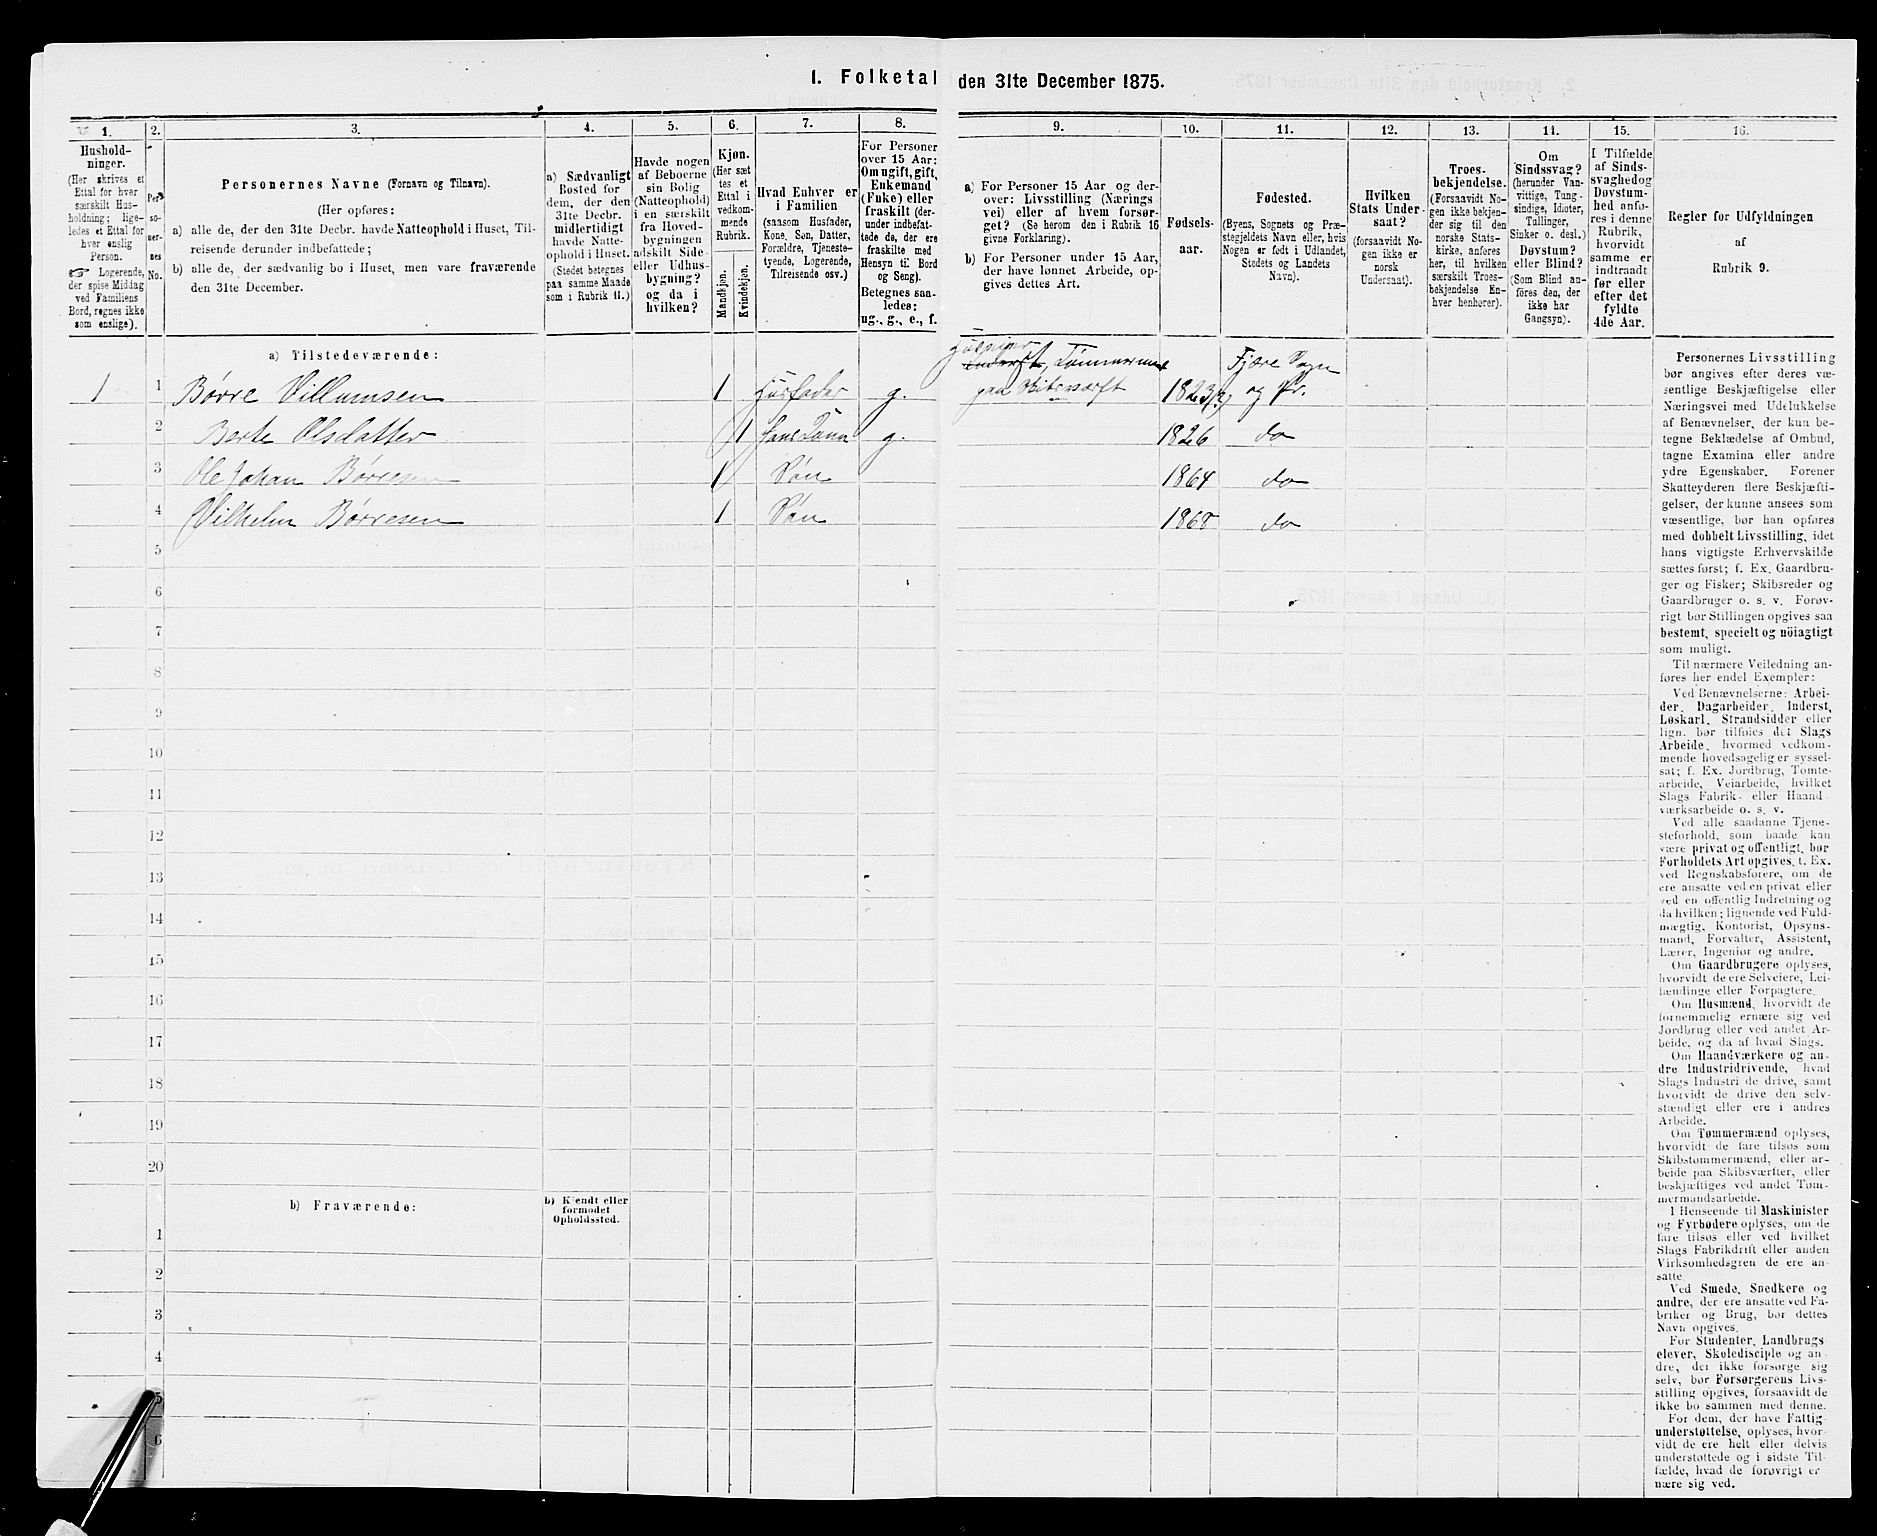 1. Folketal den 31te December 1875.
1.
Hushold-
ninger.
(Her skrives et
Ettal for hver
særskilt Hus-
holdning; lige-
ledes et Ettal for
hver enslig
Person.
☞ Logerende,
der spise Middag
ved Familiens
Bord, regnes ikke
som enslige).
2.
Per-
so-
ner-
nes
No.
3.
Personernes Navne (Fornavn og Tilnavn).
(Her opføres:
a) alle de, der den 31te Decbr. havde Natteophold i Huset, Til-
reisende derunder indbefattede;
b) alle de, der sædvanlig bo i Huset, men vare fraværende
den 31te December.
4.
a) Sædvanligt
Bosted for
dem, der den
31te Decbr.
midlertidigt
havde Natte-
ophold i Huset.
(Stedet betegnes
paa samme Maade
som i Rubrik 11.)
5.
Havde nogen
af Beboerne
sin Bolig
(Natteophold)
i en særskilt
fra Hoved-
bygningen
adskilt Side-
eller Udhus-
bygning?
og da i
hvilken?
6.
Kjøn.
(Her sæt
tes et
Ettal i
vedkom-
mende
Rubrik.
Mandkjøn.
Kvindekjøn.
7.
Hvad Enhver er
i Familien
(saasom Husfader,
Kone, Søn, Datter,
Forældre, Tjeneste-
tyende, Logerende,
Tilreisende osv.)
8.
For Personer
over 15 Aar:
Om ugift, gift,
Enkemand
(Enke) eller
fraskilt (der-
under indbefat-
tede de, der ere
fraskilte med
Hensyn til Bord
og Seng).
Betegnes saa-
ledes:
ug., g., e., f.
9.
a) For Personer 15 Aar og der-
over: Livsstilling (Nærings
vei) eller af hvem forsør-
get? (Se herom den i Rubrik 16
givne Forklaring).
b) For Personer under 15 Aar,
der have lønnet Arbeide, op-
gives dettes Art.
10.
Fødsels-
aar.
11.
Fødested.
(Byens, Sognets og Præ-
stegjeldets Navn eller, hvis
Nogen er født i Udlandet,
Stedets og Landets
Navn).
12.
Hvilken
Stats Under-
saat?
(forsaavidt No-
gen ikke er
norsk
Undersaat).
13.
Troes-
bekjendelse.
(Forsaavidt No-
gen ikke bekjen-
der sig til den
norske Stats-
kirke, anføres
her, til hvilken
særskilt Troes-
bekjendelse En-
hver henhører).
14.
Om
Sindssvag?
(herunder Van-
vittige, Tung-
sindige, Idioter,
Tullinger,
Sinker o. desl.)
Døvstum?
eller Blind?
(Som Blind an-
føres den, der
ikke har
Gangsyn).
15.
I Tilfælde
af Sinds-
svaghed og
Døvstum-
hed anfø-
res i denne
Rubrik,
hvorvidt
samme er
indtraadt
før eller
efter det
fyldte
4de Aar.
16.
Regler for Udfyldningen
af
Rubrik 9.
a) Tilstedeværende:
Huseier
Inderst, Tømmermand Fjære Sogn
1 1 Børre Villumsen 1 Husfader g. paa Skibsværft 1823 (?) og Pr.
2 Berte Olsdatter 1 hans Kone g. 1826 do
3 Ole Johan Børresen 1 Søn 1864 do
4 Vilhelm Børresen 1 Søn 1868 do
5
6
7
8
9
10
11
12
13
14
15
16
17
18
19
20
b) Fraværende:
b) Kjendt eller
formodet
Opholdssted.
1
2
3
4
5
6
Personernes Livsstilling
bør angives efter deres væ-
sentlige Beskjæftigelse eller
Næringsvei med Udelukkelse
af Benævnelser, der kun be-
tegne Beklædelse af Ombud,
tagne Examina eller andre
ydre Egenskaber. Forener
Skatteyderen flere Beskjæfti-
gelser, der kunne ansees som
væsentlige, bør han opføres
med dobbelt Livsstilling, idet
hans vigtigste Erhvervskilde
sættes først; f. Ex. Gaardbru-
ger og Fisker; Skibsreder og
Gaardbruger o. s. v. Forøv-
rigt bør Stillingen opgives saa
bestemt, specielt og nöiagtigt
som muligt.
Til nærmere Veiledning an-
føres her endel Exempler:
Ved Benævnelserne: Arbei-
der, Dagarbeider, Inderst,
Løskarl, Strandsidder eller
lign. bør tilføies det Slags
Arbeide, hvormed vedkom-
mende hovedsagelig er syssel-
sat; f. Ex. Jordbrug, Tomte-
arbeide, Veiarbeide, hvilket
Slags Fabrik- eller Haand-
værksarbeide o. s. v.
Ved alle saadanne Tjene-
steforhold, som baade kan
være privat og offentligt, bør
Forholdets Art opgives, t. Ex.
ved Regnskabsførere, om de
ere ansatte ved en privat eller
ved en offentlig Indretning og
da hvilken; lignende ved Fuld-
mægtig, Kontorist, Opsyns-
mand, Forvalter, Assistent,
Lærer, Ingeniør og andre.
Om Gaardbrugere oplyses,
hvorvidt de ere Selveiere, Lei-
lændinge eller Forpagtere.
Om Husmænd, hvorvidt de
fornemmelig ernære sig ved
Jordbrug eller ved andet Ar-
beide, og da af hvad Slags.
Om Haandværkere og an-
dre Industridrivende, hvad
Slags Industri de drive, samt
hvorvidt de drive den selv-
stændigt eller ere i andres
Arbeide.
Om Tømmermænd oplyses,
hvorvidt de fare tilsøs som
Skibstømmermænd, eller ar-
beide paa Skibsværfter, eller
beskjæftiges ved andet Tøm-
mermandsarbeide.
I Henseende til Maskinister
og Fyrbødere oplyses, om de
fare tilsøs eller ved hvilket
Slags Fabrikdrift eller anden
Virksomhedsgren de ere an-
satte.
Ved Smede, Snedkere og
andre, der ere ansatte ved Fa-
briker og Brug, bør dettes
Navn opgives.
For Studenter, Landbrugs
elever, Skoledisciple og an-
dre, der ikke forsørge sig
selv, bør Forsørgerens Livs-
stilling opgives, forsaavidt de
ikke bo sammen med denne.
For dem, der have Fattig-
understøttelse, oplyses, hvor-
vidt de ere helt eller delvis
understøttede og i sidste Til-
fælde, hvad de forøvrigt er
nære sig ved.